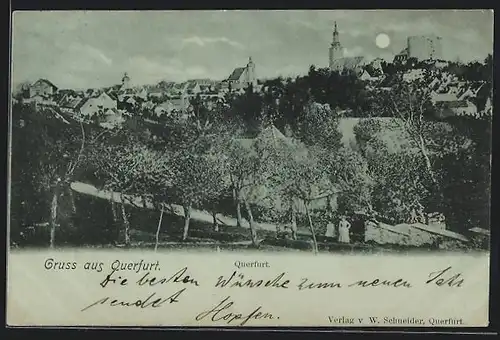 Gruss aus Querfurt.
Querfurt.
Die besten Wünsche zum neuen Jahr
sendet Hopfen.
Verlag v. W. Schneider, Querfurt.